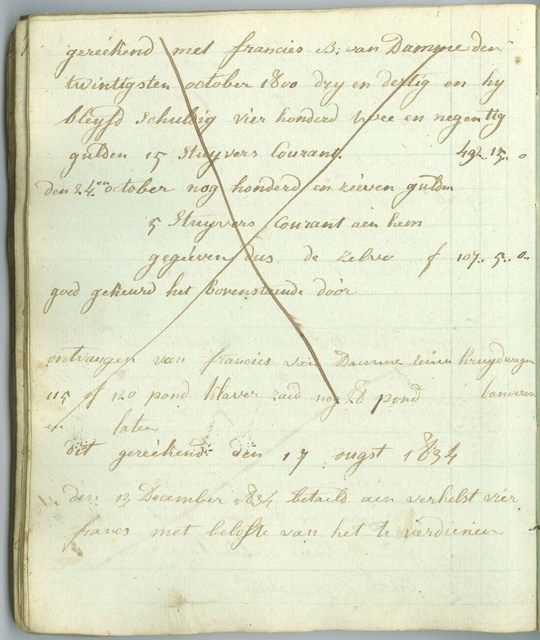 gereékend met francies B: van Damme den
twintigsten october 1800 dry en dertig en hy
bleyfd Schuldig vier honderd twee en negentig
gulden 15 Stuyvers Courant. 492.. 15.. 0
den 24en october nog honderd en zeeven gulden
5 Stuyvers Courant aen hem
gegeeven dus de zelve f 107.. 5.. 0..
goed gekeurd het bovenstaende door
ontvangen van francies van Damme eenen kruydwagen
115 of 120 pond klaver zaid nog 8 pond
en laten
dit gereékend den 17 ougst 1834
den 13 December 1834 betaeld aen verhelst vier
francs met belofte van het te verdienen